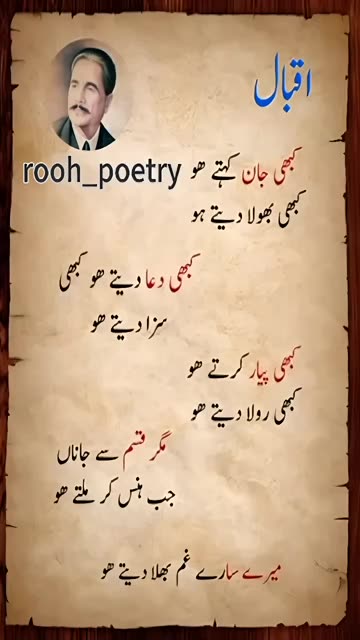 اقبال
rooh_poetry
کبھی جان کہتے ھو
کبھی بھولا دیتے ہو
کبھی دعا دیتے ھو کبھی
سزا دیتے ھو
کبھی پیار کرتے ھو
کبھی رولا دیتے ھو
مگر قسم سے جاناں
جب ہنس کر ملتے ھو
میرے سارے غم بھلا دیتے ھو